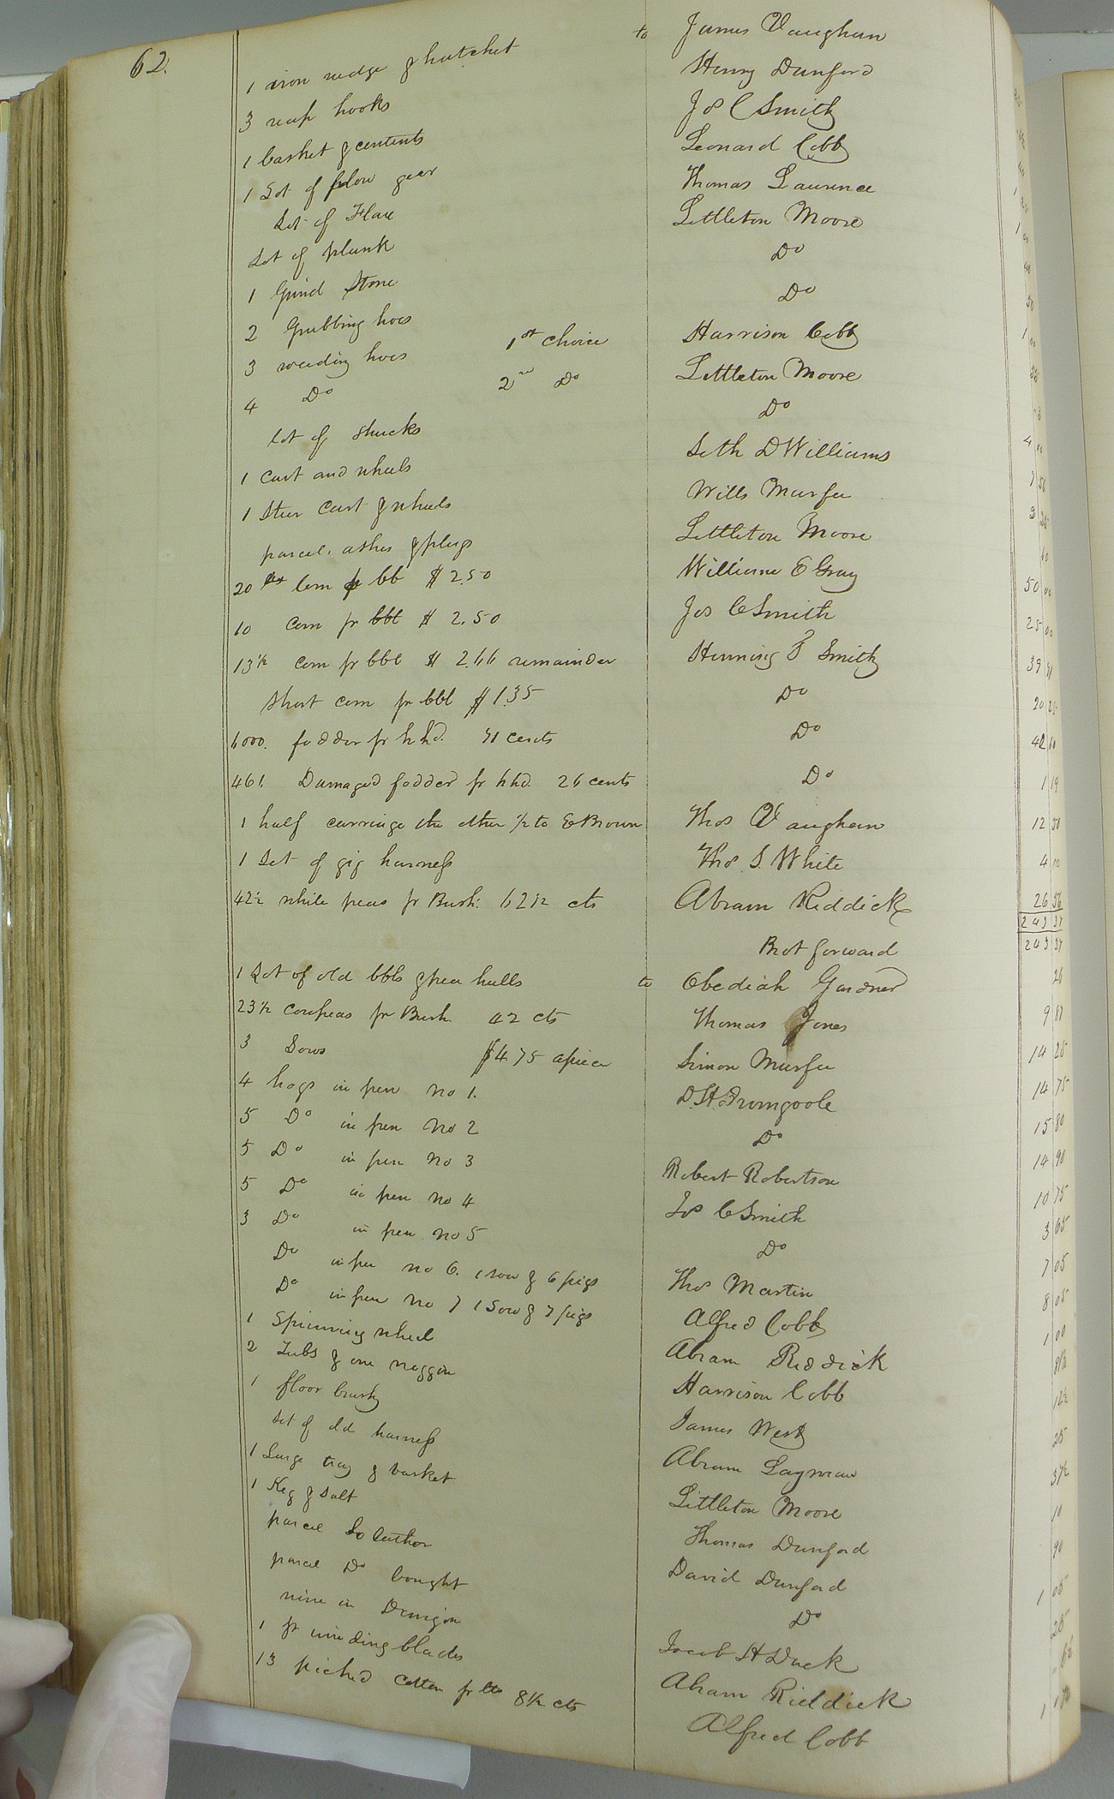 62.
1 iron wedge & hatchet to James Vaughan
3 reap hooks Henry Dunford
1 basket & contents Jos C Smith
1 Lot of plow gear Leonard Cobb
Lot of Flax Thomas Laurence
Lot of plank Littleton Moore
1 Grind Stone Do
2 Grubbing hoes Do
3 weeding hoes 1st choice Harrison Cobb
4 Do 2nd Do Littleton Moore
lot of shucks Do
1 Cart and wheels Seth D Williams
1 Steer Cart & wheels Wills Murfee
parcel ashes & plugs Littleton Moore
20 corn pr bb $2.50 William E Gray 50 00
10 Corn pr bbl $ 2.50 Jos C Smith 25 00
13½ Corn pr bbl $ 2.66 remainder Henning T Smith 39
Short corn pr bbl $1.35 Do 20
6000. fodder pr hhd. 71 cents Do 42
461. Damaged fodder pr hhd 26 cents Do 1 19
1 half carriage the other ½ to E Brown Thos Vaughan 12 50
1 Set of gig harness Thos S. White 4
42½ white peas pr Bush: 62½ cts Abram Riddick 26 56
243 37
Brot forward 243 37
1 Lot of old bbls & pea hulls to Obediah Gardner 25
23½ cowpeas pr Bush. 42 cts Thomas Jones 9 87
3 Sows $4 75 apiece Simon Murfee 14 25
4 hogs in pen No 1. D. H. Dromgoole 14 75
5 Do in pen No 2 Do 15 80
5 Do in pen No 3 Robert Robertson 14 90
5 Do in pen No 4 Jos C Smith 10 75
3 Do in pen No 5 Do 3 65
Do in pen No 6. 1 Sow & 6 pigs Thos Martin 7 05
Do in pen No 7 1 Sow & 7 pigs Alfred Cobb 8 05
1 Spinning wheel Abram Riddick 1 00
2 Tubs & one noggin Harrison Cobb
1 floor brush James West
Lot of old harness Abram Layman 25
1 Large tray & basket Littleton Moore 37½
1 Keg & Salt Thomas Dunford 10
parcel So leather David Dunford 90
parcel Do bought Do 1 05
nine in Jacob H Duck 25
1 pr winding blades Abram Riddick
13 picked cotton pr lb 8½ cts Alfred Cobb 1